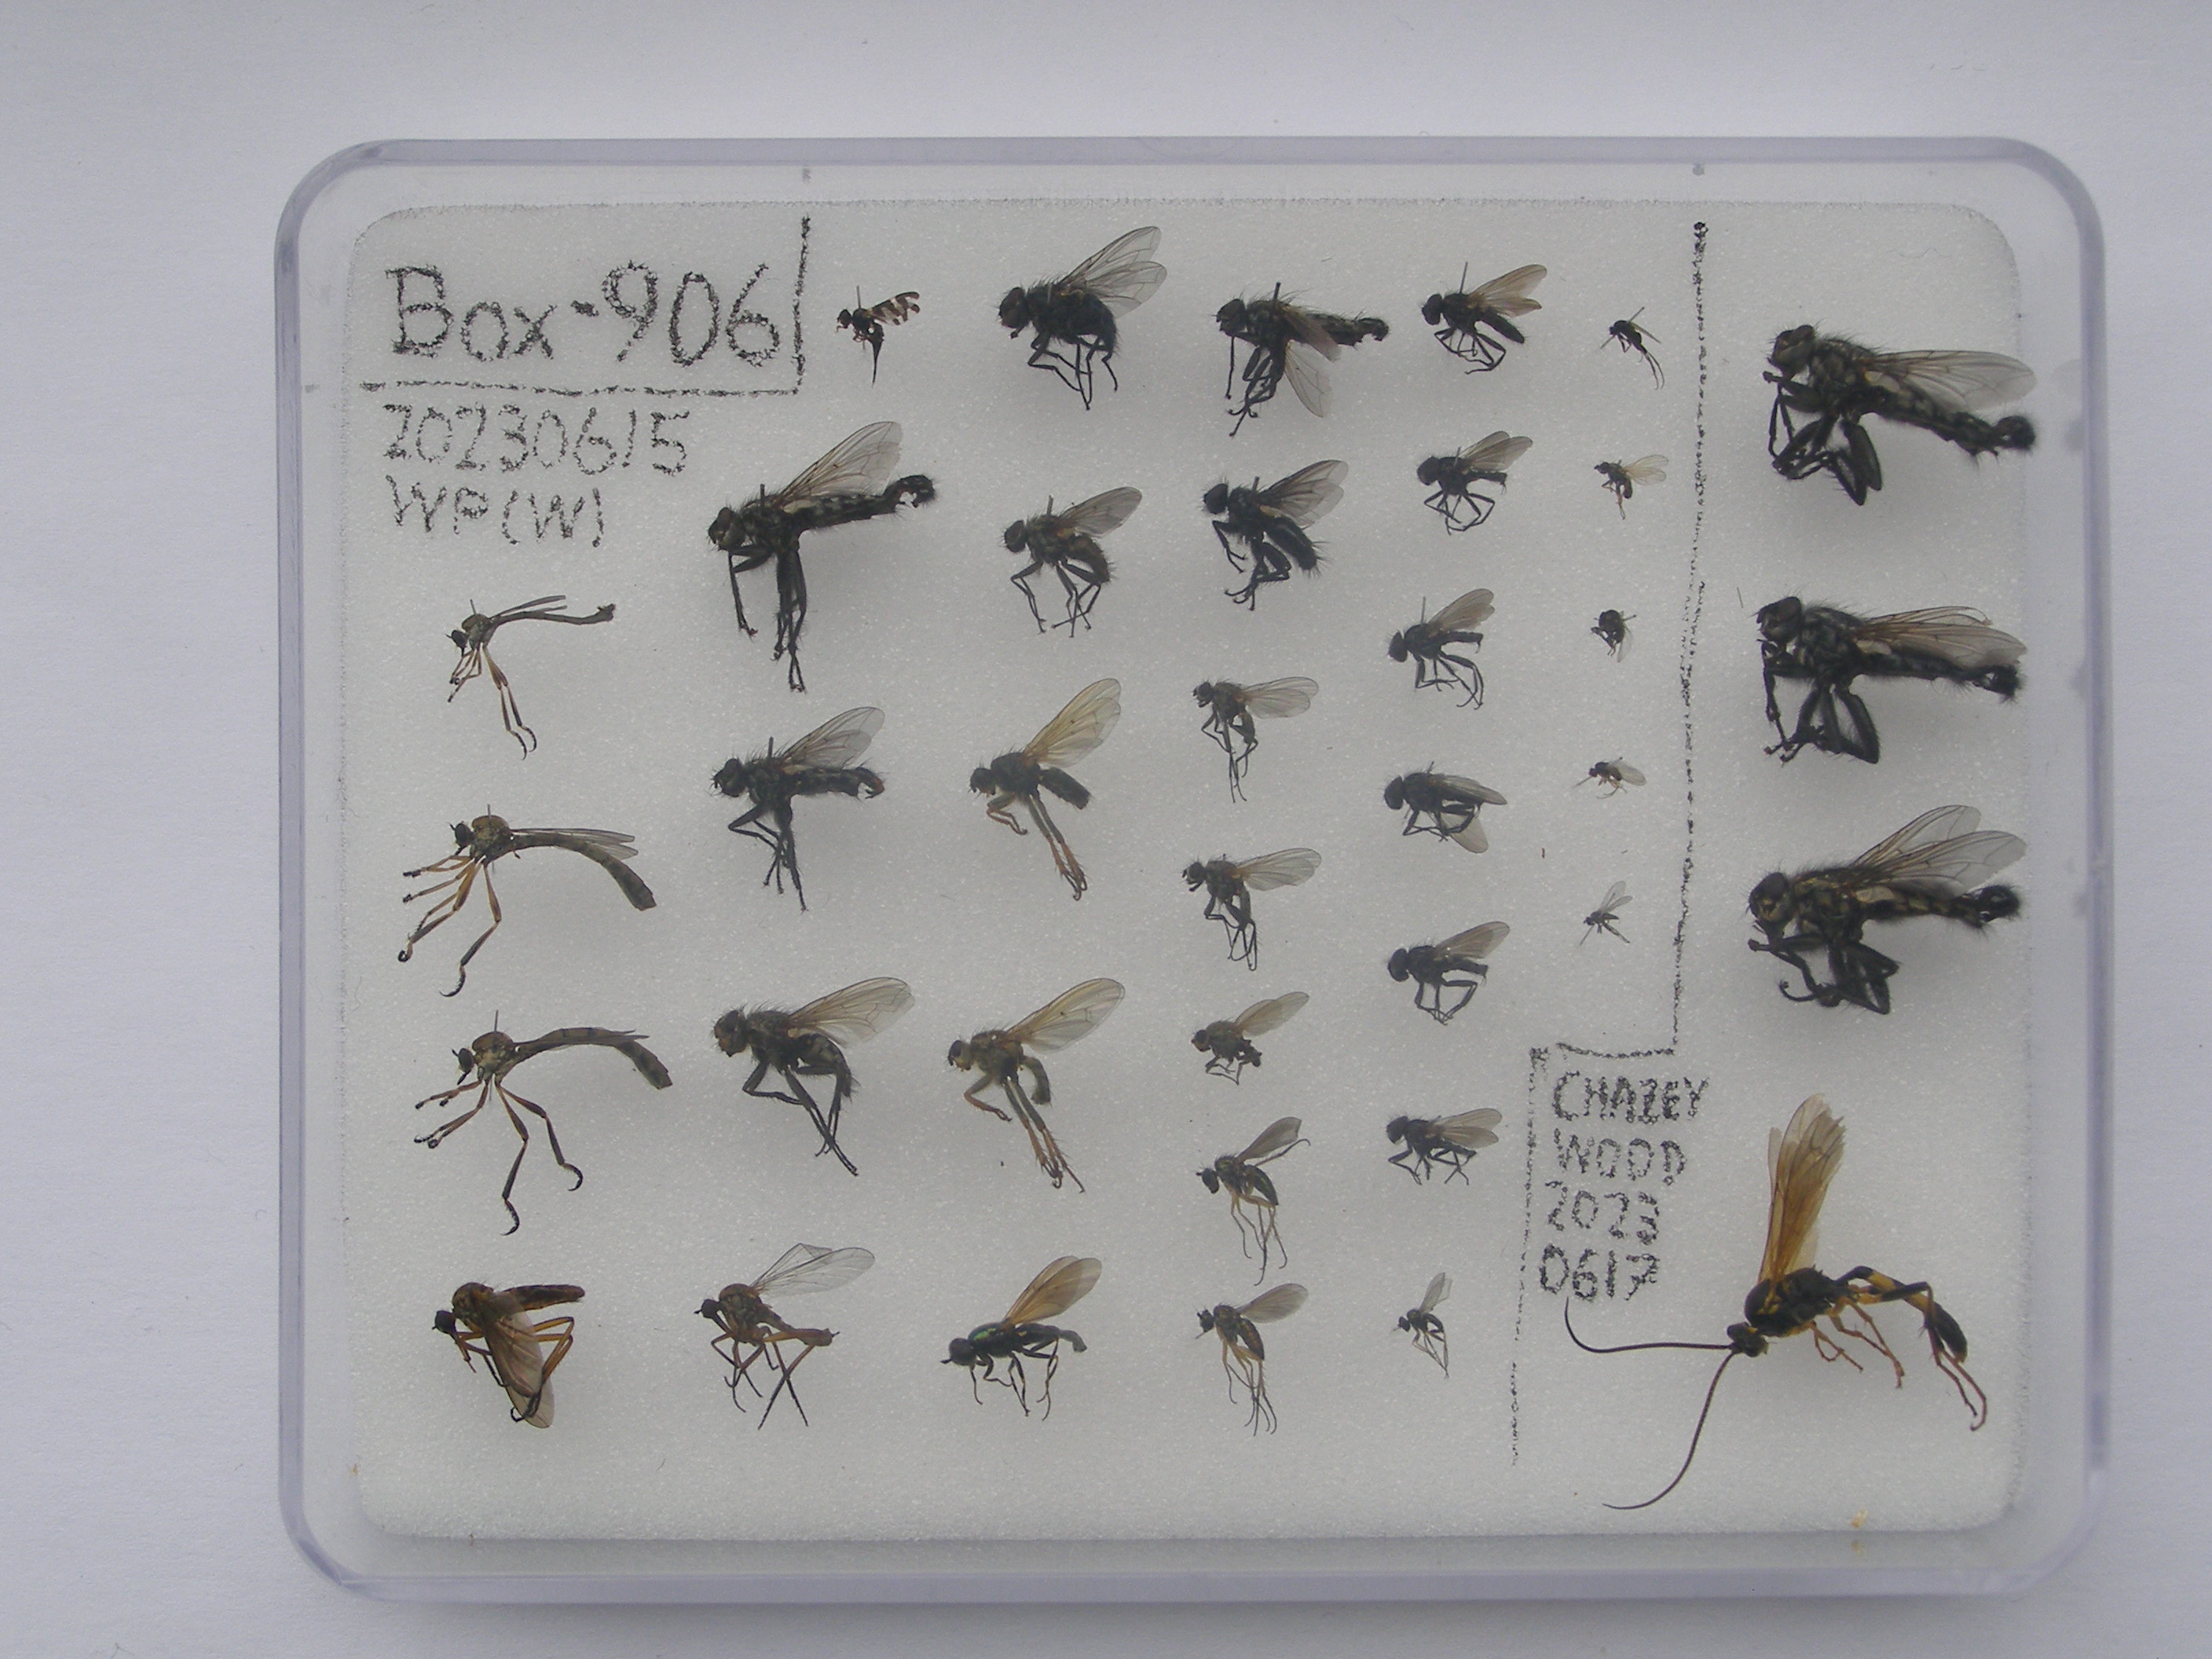 Box-906
20230615
WP(W)
CHAZEY
WOOD
2023
0617